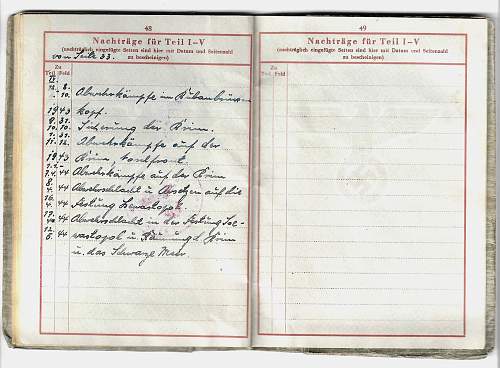 48
Nachträge für Teil I–V
(nachträglich eingefügte Seiten sind hier mit Datum und Seitenzahl
zu bescheinigen)
von Seite 33.
Zu
Teil Feld
IV.
Abwehrkämpfe im Kubanbrücken
1943 kopf.
10.10. Sicherung der Krim.
11.12. Abwehrkämpfe auf der
1943 Krim, Nordfront.
7.4.44 Abwehrkämpfe auf der Krim
8.4.44 Abwehrschlacht u. Absetzen auf die
16. Festung Sewastopol.
17.4.44 Abwehrschlacht in der Festung Se-
12.5.44 wastopol u. Räumung d. Krim
u. das Schwarze Meer.
49
Nachträge für Teil I–V
(nachträglich eingefügte Seiten sind hier mit Datum und Seitenzahl
zu bescheinigen)
Zu
Teil Feld